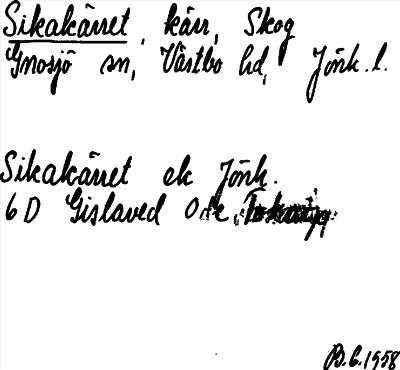 Sikakärret, kärr, Skog
Gnosjö sn, Västbo hd, Jönk. l.
Sikakärret ek Jönk.
6 D Gislaved Ode
1958